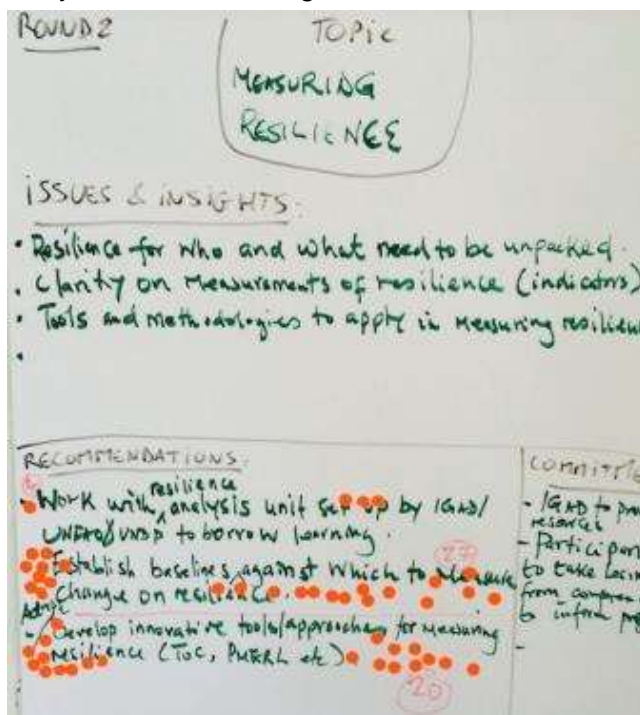 ROUND 2
TOPIC
MEASURING
RESILIENCE
ISSUES & INSIGHTS:
• Resilience for who and what need to be unpacked.
• Clarity on measurements of resilience (indicators)
• Tools and methodologies to apply in measuring resilien
•
RECOMMENDATIONS:
resilience
- Work with analysis unit set up by IGAD/
UNFAO/UNDP to borrow learning.
27
- Establish baselines against which to measure
change on resilience.
Adopt
- Develop innovative tools/approaches for measuring
resilience (TOC, PMERL etc)
20
COMMITME
- IGAD to pro
resources
- Participan
to take
from
to inform
-